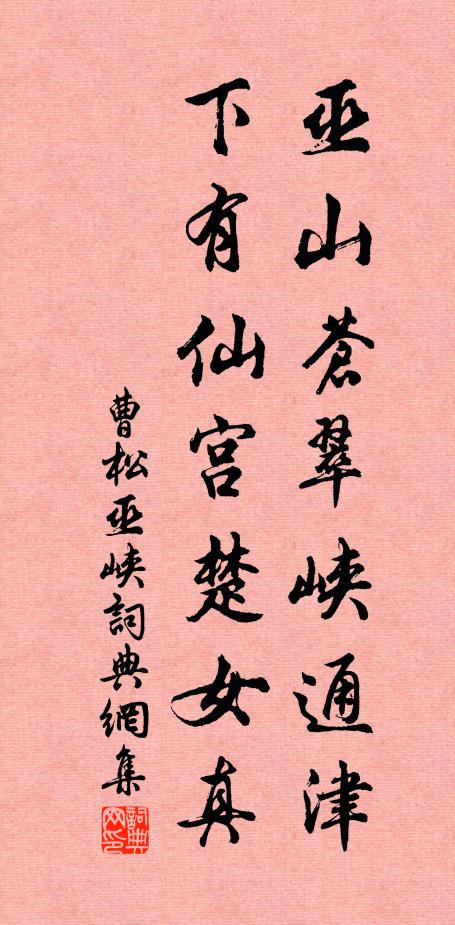 巫山蒼翠峽通津
下有仙宫楚女真
曹松巫峽詞典網集
詞典网印